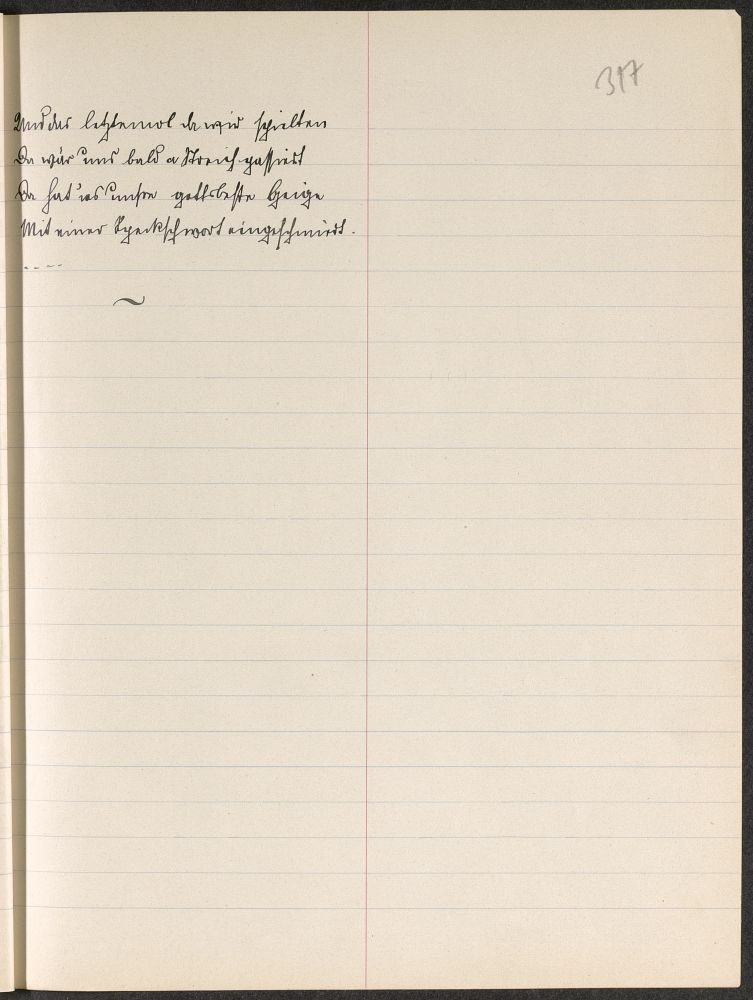 317
Und das letztemol da wir spielten
Da wär uns bald a Streich passiert
Da hat 's unsre gottsbeste Geige
Mit einer Speckschwort eingeschmiert.
- - - -
~